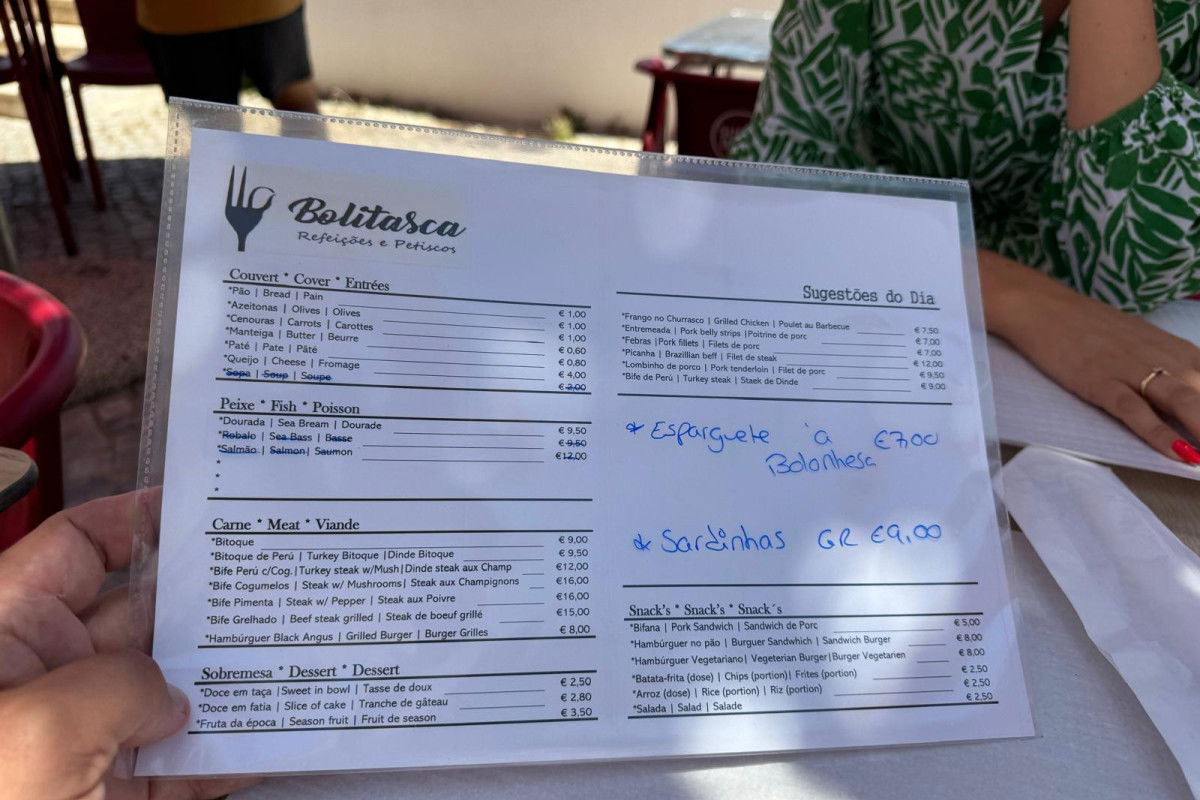 Bolitasca
Refeições e Petiscos
Couvert * Cover * Entrées
*Pão | Bread | Pain € 1,00
*Azeitonas | Olives | Olives € 1,00
*Cenouras | Carrots | Carottes € 1,00
*Manteiga | Butter | Beurre € 0,60
*Paté | Pate | Pâté € 0,80
*Queijo | Cheese | Fromage € 4,00
*Sopa | Soup | Soupe € 2,00
Peixe * Fish * Poisson
*Dourada | Sea Bream | Dourade € 9,50
*Robalo | Sea Bass | Basse € 9,50
*Salmão | Salmon | Saumon €12,00
*
*
Carne * Meat * Viande
*Bitoque € 9,00
*Bitoque de Perú | Turkey Bitoque |Dinde Bitoque € 9,50
*Bife Perú c/Cog.|Turkey steak w/Mush|Dinde steak aux Champ €12,00
*Bife Cogumelos | Steak w/ Mushrooms| Steak aux Champignons €16,00
*Bife Pimenta | Steak w/ Pepper | Steak aux Poivre €16,00
*Bife Grelhado | Beef steak grilled | Steak de boeuf grillé €15,00
*Hambúrguer Black Angus | Grilled Burger | Burger Grilles € 8,00
Sobremesa * Dessert * Dessert
*Doce em taça |Sweet in bowl | Tasse de doux € 2,50
*Doce em fatia | Slice of cake | Tranche de gâteau € 2,80
*Fruta da época | Season fruit | Fruit de season € 3,50
Sugestões do Dia
*Frango no Churrasco | Grilled Chicken | Poulet au Barbecue € 7,50
*Entremeada | Pork belly strips |Poitrine de porc € 7,00
*Febras |Pork fillets | Filets de porc € 7,00
*Picanha | Brazillian beff | Filet de steak € 12,00
*Lombinho de porco | Pork tenderloin | Filet de porc € 9,50
*Bife de Perú | Turkey steak | Staek de Dinde € 9,00
* Esparguete à €7,00
Bolonhesa
* Sardinhas GR €9,00
Snack's * Snack's * Snack´s
*Bifana | Pork Sandwich | Sandwich de Porc € 5,00
*Hambúrguer no pão | Burguer Sandwhich | Sandwich Burger € 8,00
*Hambúrguer Vegetariano| Vegeterian Burger|Burger Vegetarien € 8,00
*Batata-frita (dose) | Chips (portion)| Frites (portion) € 2,50
*Arroz (dose) | Rice (portion) | Riz (portion) € 2,50
*Salada | Salad | Salade € 2,50